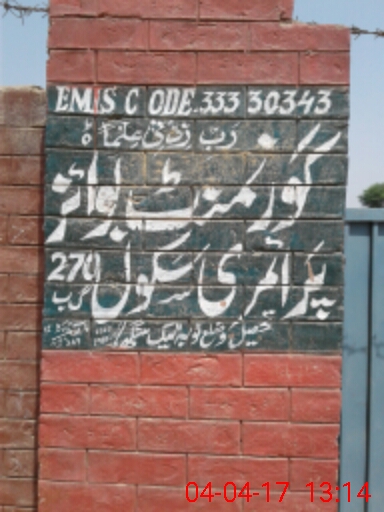 EMIS CODE.333 30343
رَبِّ زِدْنِي عِلْمًا ط
گورنمنٹ بوائز
پرائمری سکول 270 گ ب
تحصیل و ضلع ٹوبہ ٹیک سنگھ
04-04-17 13:14